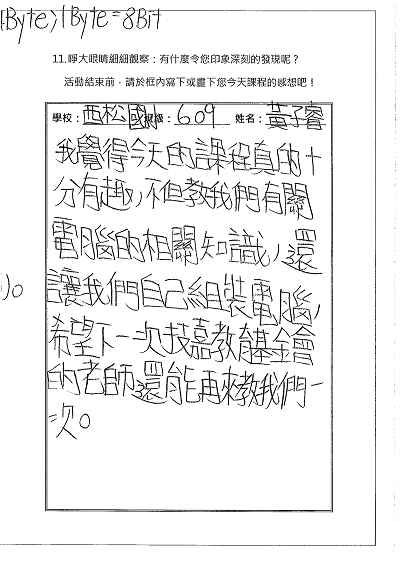 1Byte>1Byte=8Bit
11.睜大眼睛細細觀察：有什麼令您印象深刻的發現呢？
活動結束前，請於框內寫下或畫下您今天課程的感想吧！
學校：西松國小 班級：609 姓名：黃子睿
我覺得今天的課程真的十
分有趣，不但教我們有關
電腦的相關知識，還
讓我們自己組裝電腦，
希望下一次技嘉教育基金會
的老師還能再來教我們一
次。